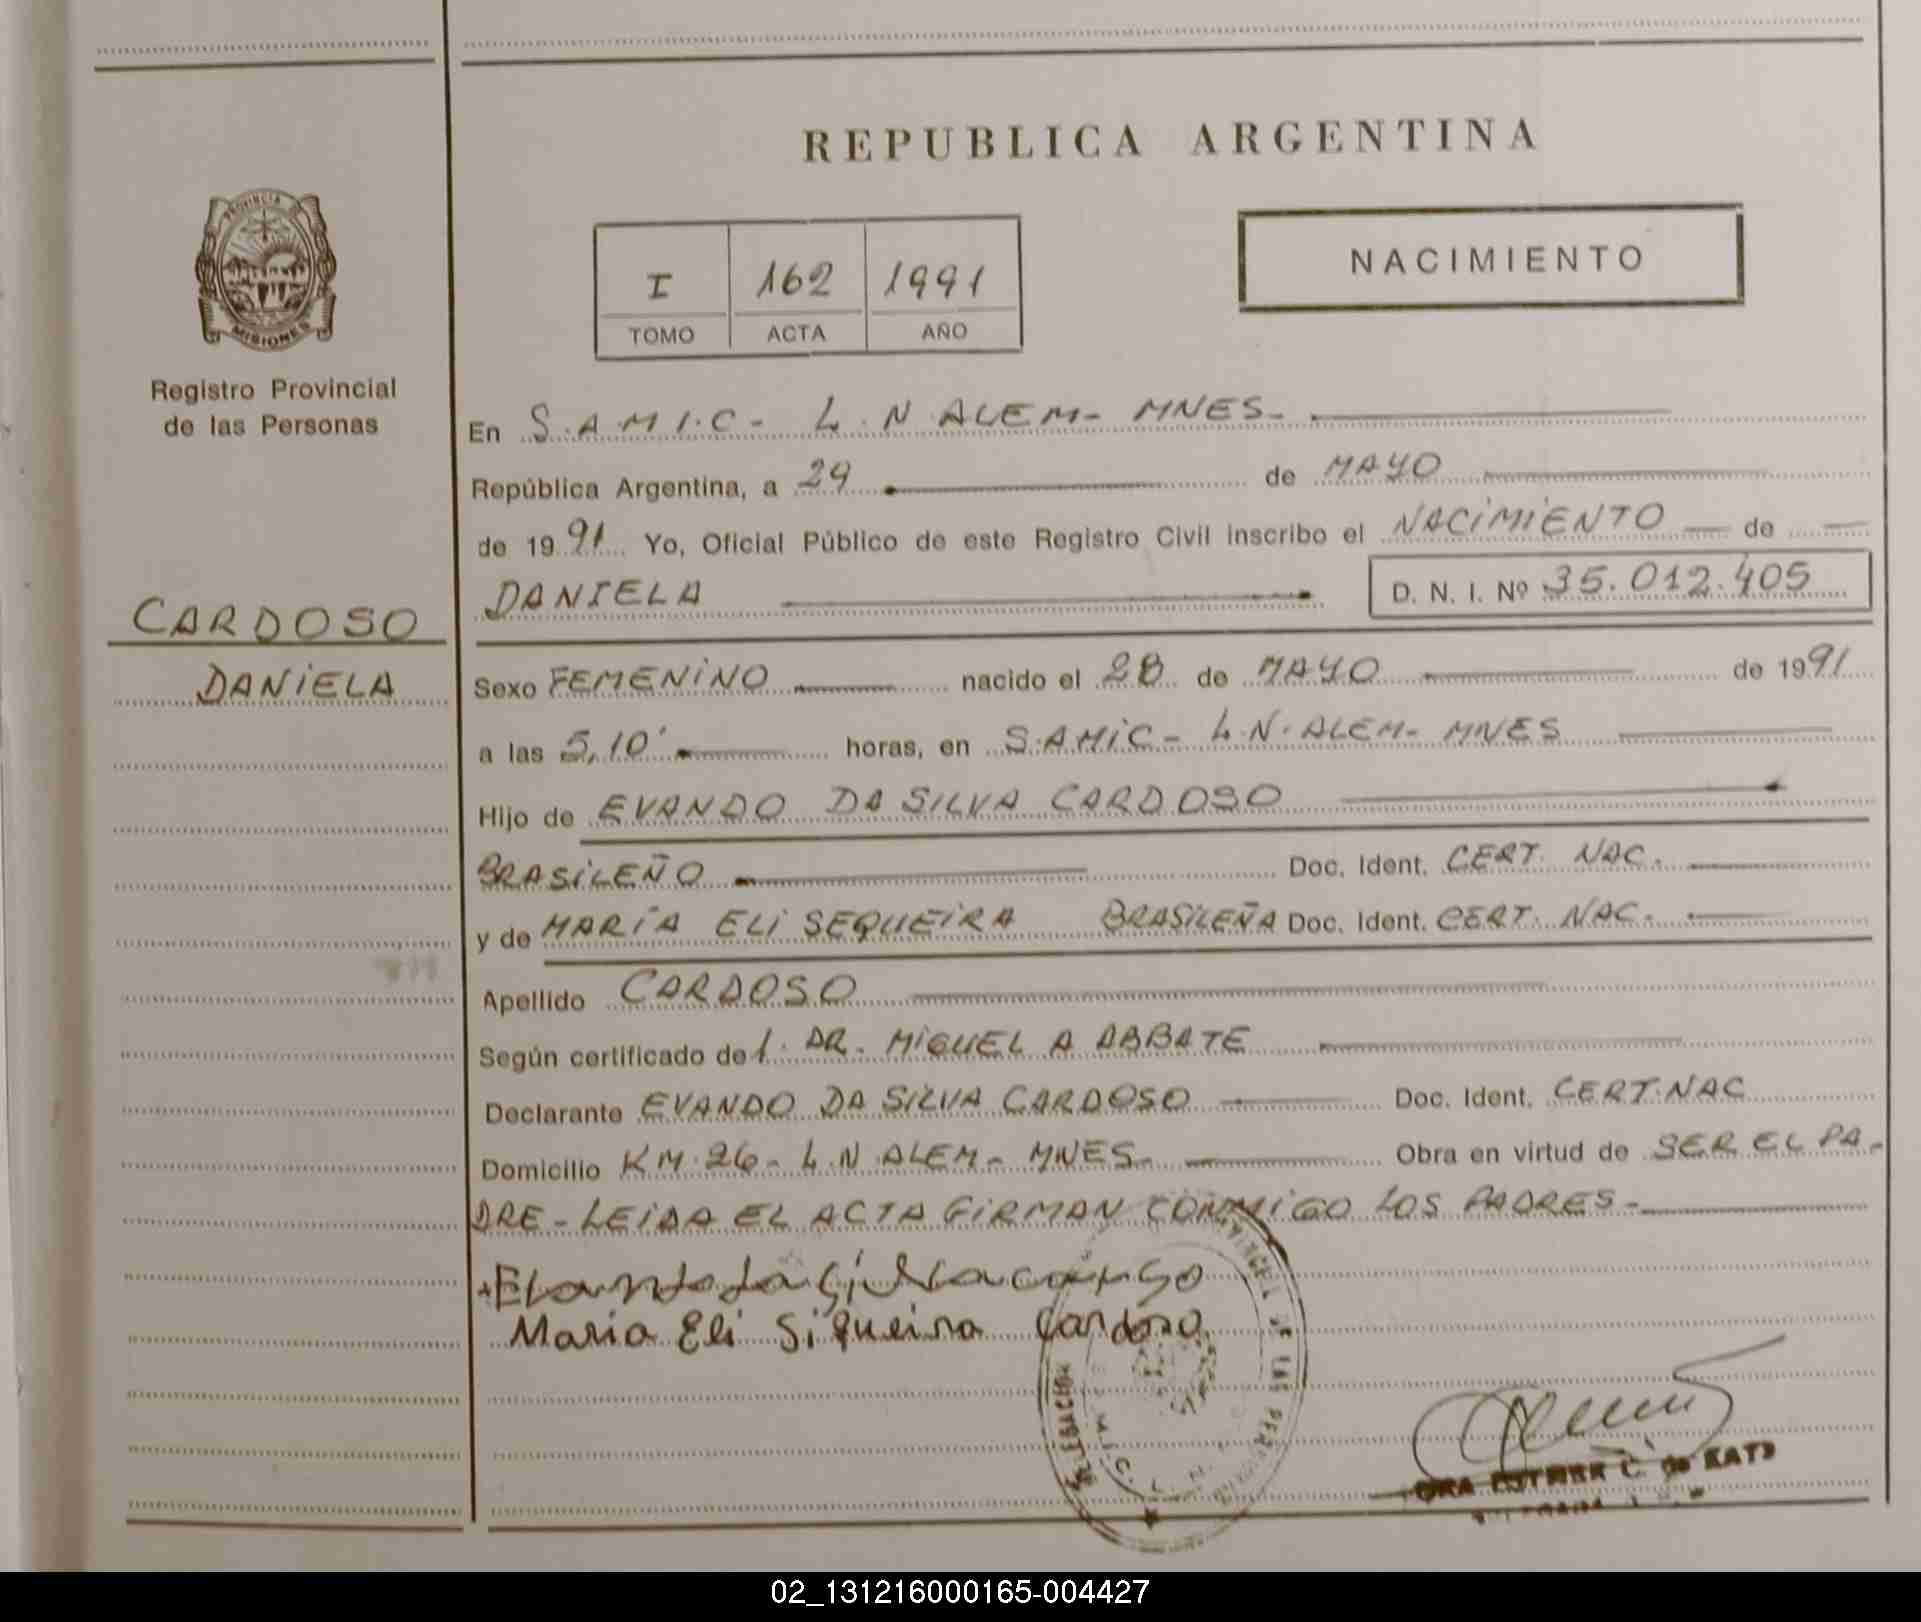 REPUBLICA ARGENTINA
PROVINCIA DE
MISIONES
Registro Provincial
de las Personas
I 162 1991
TOMO ACTA AÑO
NACIMIENTO
En S.A.M.I.C- L.N ALEM- MNES-
República Argentina, a 29 de MAYO
de 1991 Yo, Oficial Público de este Registro Civil inscribo el NACIMIENTO de
DANIELA D. N. I. Nº 35.012.405
CARDOSO
DANIELA
Sexo FEMENINO nacido el 28 de MAYO de 1991
a las 5,10' horas, en S.AMIC- L.N. ALEM- MNES
Hijo de EVANDO DA SILVA CARDOSO
BRASILEÑO Doc. Ident. CERT. NAC.
y de MARÍA ELI SEQUEIRA BRASILEÑA Doc. Ident. CERT. NAC.
Apellido CARDOSO
Según certificado de l. DR. MIGUEL A ABBATE
Declarante EVANDO DA SILVA CARDOSO Doc. Ident. CERT.NAC
Domicilio KM 26- L.N ALEM- MNES- Obra en virtud de SER EL PA-
DRE- LEIDA EL ACTA FIRMAN CONMIGO LOS PADRES-
Maria Eli Siqueira Cardozo
C. de KATZ
02_131216000165-004427